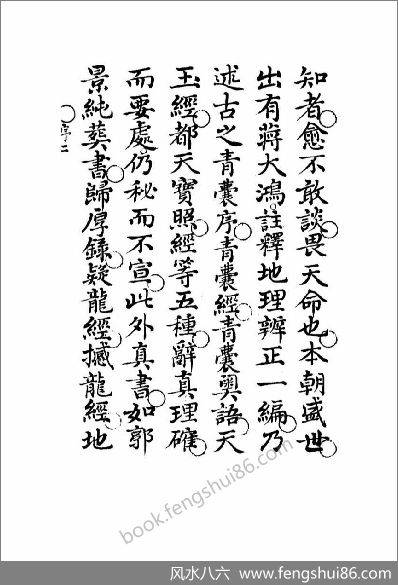 知者愈不敢談畏天命也本朝盛世
出有蔣大鴻註釋地理辨正一編乃
述古之青囊序青囊經青囊奧語天
玉經都天寶照經等五種辭真理確
而要處仍秘而不宣此外真書如郭
景純葬書歸厚錄疑龍經撼龍經地
序二
book.fengshui86.com
风水八六 - www.fengshui86.com